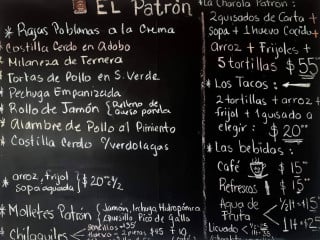 EL Patrón
* Rajas Poblanas a la Crema
* Costilla Cerdo en Adobo
* Milaneza de Ternera
* Tortas de Pollo en S. Verde
* Pechuga Empanizada
* Rollo de Jamón (Relleno de Queso panela
* Alambre de Pollo al Pimiento
* Costilla Cerdo c/verdolagas
* arroz, frijol
sopa aguada } $20 c/u
* Molletes Patrón (Jamón, lechuga Hidropónica
Quesillo Pico de Gallo
* Chilaquiles
sencillos $35
huevo 2 piezas $45
*La Charola Patrón:
2 guisados de Carta +
sopa + 1 huevo Cocido +
arroz + Frijoles +
5 tortillas $55
* Los Tacos:
2 tortillas + arroz +
frijol + 1 guisado a
elegir: $20
* Las bebidas:
Café $15
Refrescos $15
Agua de
Fruta
1/2 $15
1Lt $25
Licuado